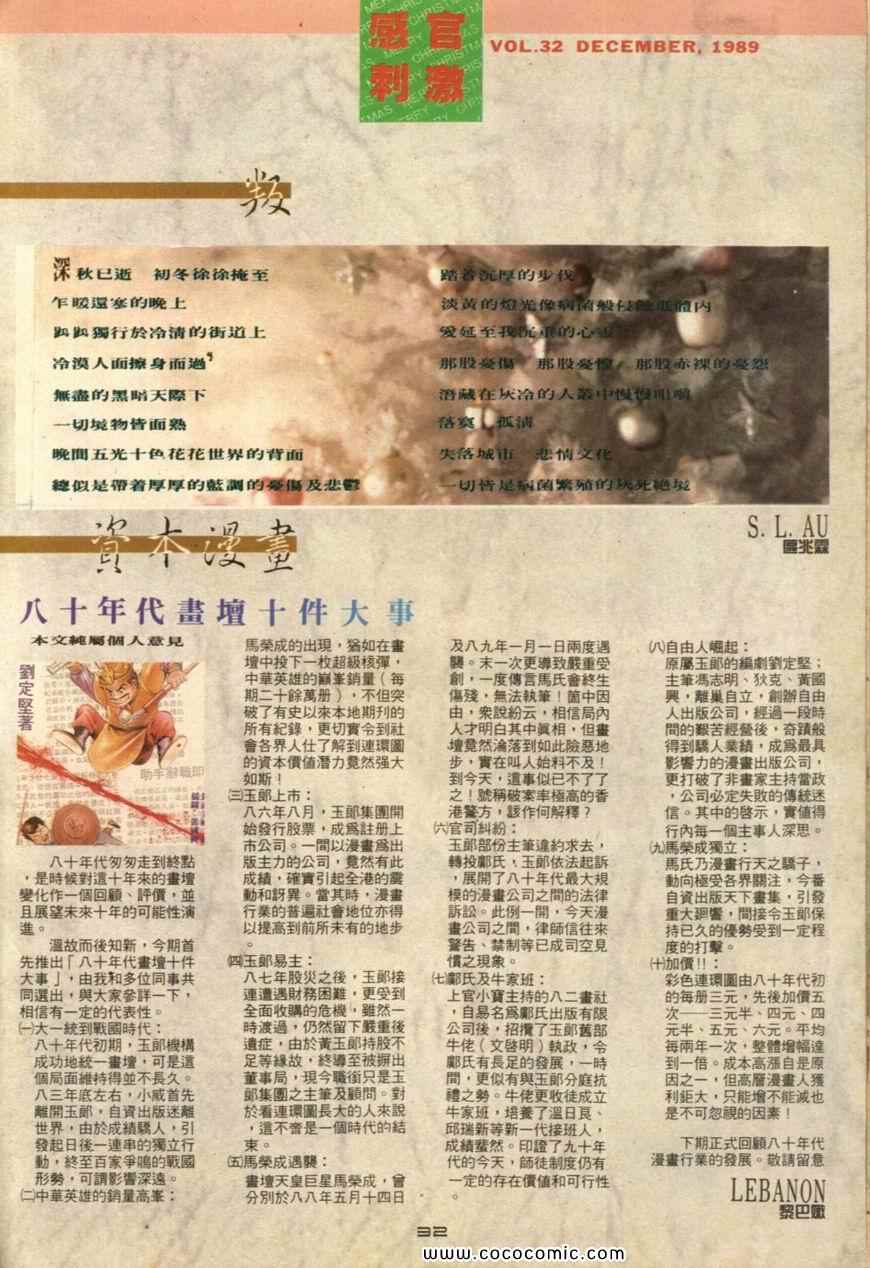 感官
刺激
VOL.32 DECEMBER, 1989
叛
深秋已逝　初冬徐徐掩至
乍暖還寒的晚上
踽踽獨行於冷清的街道上
冷漠人面擦身而過
無盡的黑暗天際下
一切境物皆面熟
晚間五光十色花花世界的背面
總似是帶着厚厚的藍調的憂傷及悲鬱
踏着沉厚的步伐
淡黃的燈光像病菌般侵蝕底體內
蔓延至我沉重的心靈
那股憂傷　那股憂惶　那股赤裸的憂怨
潛藏在灰冷的人叢中慢慢咀嚼
落寞　孤清
失落城市　悲情文化
一切皆是病菌繁殖的灰死絕境
S. L. AU
區兆霖
資本漫畫
八十年代畫壇十件大事
本文純屬個人意見
劉定堅著
助手辭職即
八十年代匆匆走到終點
，是時候對這十年來的畫壇
變化作一個回顧、評價，並
且展望未來十年的可能性演
進。
溫故而後知新，今期首
先推出「八十年代畫壇十件
大事」，由我和多位同事共
同選出，與大家參詳一下，
相信有一定的代表性。
㈠大一統到戰國時代：
八十年代初期，玉郎機構
成功地統一畫壇，可是這
個局面維持得並不長久。
八三年底左右，小威首先
離開玉郎，自資出版迷離
世界，由於成績驕人，引
發起日後一連串的獨立行
動，終至百家爭鳴的戰國
形勢，可謂影響深遠。
㈡中華英雄的銷量高峯：
馬榮成的出現，猶如在畫
壇中投下一枚超級核彈，
中華英雄的巔峯銷量（每
期二十餘萬册），不但突
破了有史以來本地期刊的
所有紀錄，更切實令到社
會各界人仕了解到連環圖
的資本價值潛力竟然强大
如斯！
㈢玉郎上市：
八六年八月，玉郎集團開
始發行股票，成爲註册上
市公司。一間以漫畫爲出
版主力的公司，竟然有此
成績，確實引起全港的震
動和訝異。當其時，漫畫
行業的普遍社會地位亦得
以提高到前所未有的地步
。
㈣玉郎易主：
八七年股災之後，玉郎接
連遭遇財務困難，更受到
全面收購的危機，雖然一
時渡過，仍然留下嚴重後
遺症，由於黃玉郎持股不
足等緣故，終導至被摒出
董事局，現今職銜只是玉
郎集團之主筆及顧問。對
於看連環圖長大的人來說
，這不啻是一個時代的結
束。
㈤馬榮成遇襲：
畫壇天皇巨星馬榮成，曾
分別於八八年五月十四日
及八九年一月一日兩度遇
襲。末一次更導致嚴重受
創，一度傳言馬氏會終生
傷殘，無法執筆！箇中因
由，衆說紛云，相信局內
人才明白其中眞相，但畫
壇竟然淪落到如此險惡地
步，實在叫人始料不及！
到今天，這事似已不了了
之！號稱破案率極高的香
港警方，該作何解釋？
㈥官司糾紛：
玉郎部份主筆違約求去，
轉投鄺氏，玉郎依法起訴
，展開了八十年代最大規
模的漫畫公司之間的法律
訴訟。此例一開，今天漫
畫公司之間，律師信往來
警告、禁制等已成司空見
慣之現象。
㈦鄺氏及牛家班：
上官小寶主持的八二畫社
，自易名爲鄺氏出版有限
公司後，招攬了玉郎舊部
牛佬（文啓明）執政，令
鄺氏有長足的發展，一時
間，更似有與玉郎分庭抗
禮之勢。牛佬更收徒成立
牛家班，培養了溫日良、
邱瑞新等新一代接班人，
成績蜚然。印證了九十年
代的今天，師徒制度仍有
一定的存在價値和可行性
。
㈧自由人崛起：
原屬玉郎的編劇劉定堅；
主筆馮志明、狄克、黃國
興，離巢自立，創辦自由
人出版公司，經過一段時
間的艱苦經營後，奇蹟般
得到驕人業績，成爲最具
影響力的漫畫出版公司，
更打破了非畫家主持當政
，公司必定失敗的傳統迷
信。其中的啓示，實値得
行內每一個主事人深思。
㈨馬榮成獨立：
馬氏乃漫畫行天之驕子，
動向極受各界關注，今番
自資出版天下畫集，引發
重大廻響，間接令玉郎保
持已久的優勢受到一定程
度的打擊。
㈩加價!!：
彩色連環圖由八十年代初
的每册三元，先後加價五
次——三元半、四元、四
元半、五元、六元。平均
每兩年一次，整體增幅達
到一倍。成本高漲自是原
因之一，但高層漫畫人獲
利鉅大，只能增不能減也
是不可忽視的因素！
下期正式回顧八十年代
漫畫行業的發展。敬請留意
LEBANON
黎巴嫩
32
www.cococomic.com